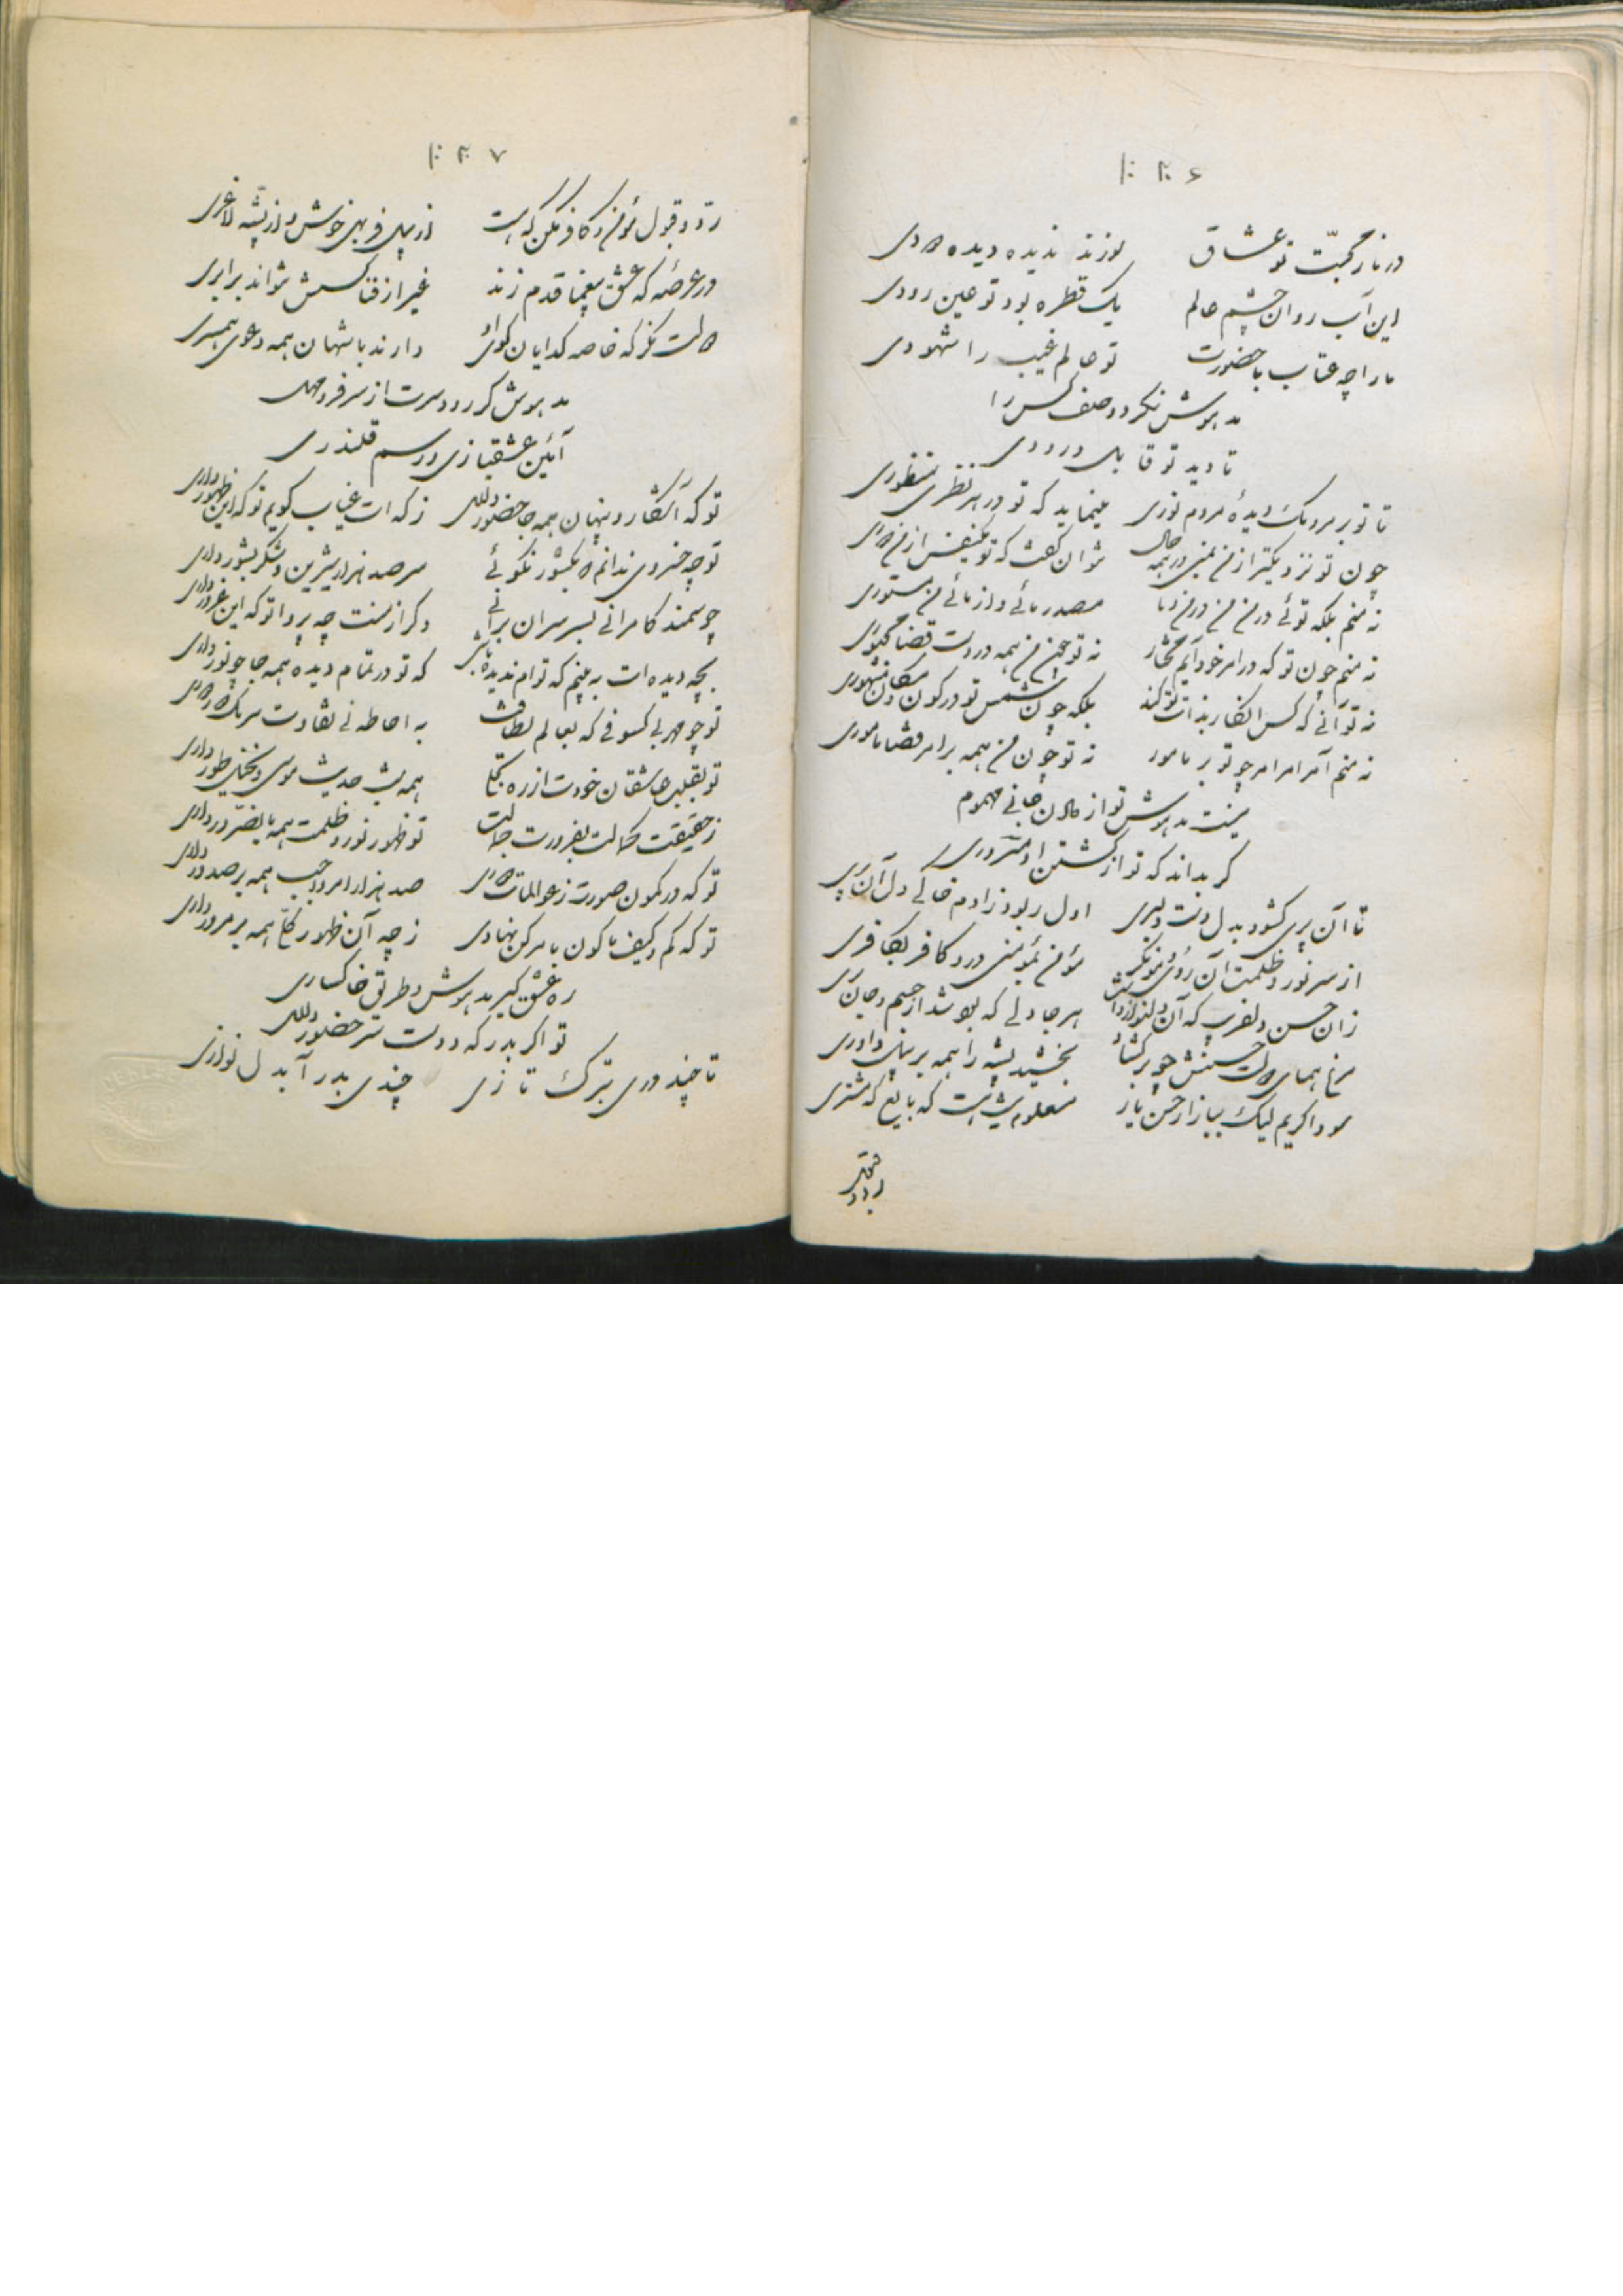 ۱۰۲۶
در نار محبّت تو عشاق سوزند ندیده دیده دودی
این آب روان چشم عالم یک قطره بود تو عین رودی
ما را چه عتاب با حضورت تو عالم غیب را شهودی
مدهوش نکرد وصف کس را
تا دید تو قابل درودی
تا تو بر مردمک دیدهٔ مردم نوری مینماید که تو در هر نظری منظوری
چون تو نزدیکتر از من بمنی در همه حال نتوان گفت که تو یکنفس از من دوری
نه منم بلکه توئی در من و من
نه منم چون تو که در امر خود آیم مختار نه تو چون من همه در دست قضا مجبوری
نه تو آنی که کس انکار بذات تو کند بلکه چون شمس تو در کون و مکان مشهوری
نه منم آمر امر امر چو تو بر مامور نه تو چون من همه بر امر قضا ماموری
نیست مدهوش تو از دادن جانی مهموم
گر بداند که تو از کشتن او مسروری
تا آن پری گشود بدل دست دلبری اول ربود ز آدم خاکی دل آن پری
از سر نور و ظلمت آن روی و مو نگر مؤمن بمؤمنی در و کافر بکافری
زان حسن دلفریب که آن دلنواز داشت هر جا دلی که بود شد از جسم و جان بری
مرغ همای حسنش چو پر گشاد بخشید پشه را همه بر پیل داوری
سودا کریم لیک ببازار حسن یار معلوم نیست که بایع که مشتری
۱۰۲۷
ردّ و قبول مؤمن و کافر مکن که هست از پیل فربهی خوش و از پشّه لاغری
در عرصهٔ که عشق بیغما قدم زند غیر از فنا کسش نتواند برابری
نگر که خاصه گدایان کوی او دارند با شهان همه دعوی همسری
مدهوش کرده دست از سر
آئین عشقبازی و رسم قلندری
تو که آشکار و پنهان همه جا حضور داری ز که ات غیاب گویم تو که این ظهور داری
تو چه خسروی ندانم که بکشور نکوئی سر صد هزار شیرین و شکر بشور داری
چو سمند کامرانی بسر سران برانی دگر از منت چه پروا تو که این غرور داری
بچه دیده ات به بینم که توام ندیده باشی که تو در تمام دیده همه جا چو نور داری
تو چو مهر بی کسوفی که بعالم به احاطه نی تفاوت سر نزدیک و دور داری
تو بقلب عاشقان خودت از ره تجلا همه شب حدیث موسی و نخیل طور داری
ز حقیقت تو ظهور نور و ظلمت همه داری
تو که در کمون صورت ز عوالمات صد هزار امر واجب همه بر صدور داری
تو که کم و کیف با کون نهادی ز چه آن ظهور همه بر مرور داری
ره عشق گیر مدهوش و طریق خاکساری
تو اگر بدرگه دوست سر حضور داری
تا چند دوری بترک تازی چندی بدر آ بدل نوازی